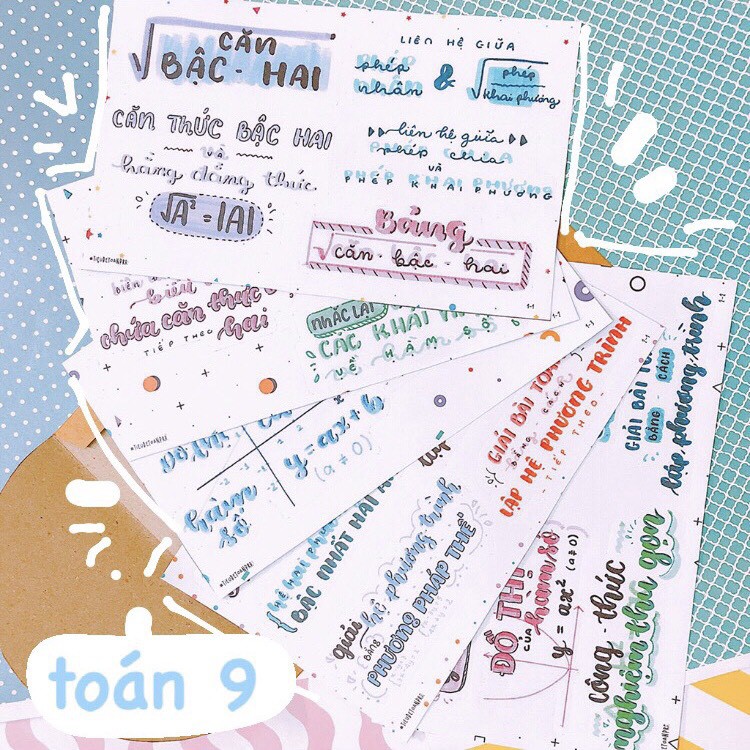 CĂN
BẬC - HAI
LIÊN HỆ GIỮA
phép nhân & phép khai phương
CĂN THỨC BẬC HAI
và
hằng đẳng thức
√A² = |A|
liên hệ giữa
phép chia
VÀ
PHÉP KHAI PHƯƠNG
Bảng
căn · bậc · hai
biến
biểu
chứa căn thức
hai
TIẾP THEO
NHẮC LẠI
CÁC KHÁI
VỀ HÀM SỐ
ĐỒ THỊ
hàm số
y = ax + b
(a ≠ 0)
GIẢI BÀI TOÁN
BẰNG CÁCH
LẬP HỆ PHƯƠNG TRÌNH
- TIẾP THEO -
GIẢI BÀI TOÁN
BẰNG CÁCH
lập phương trình
HỆ HAI
BẬC NHẤT HAI
giải hệ phương trình
BẰNG
PHƯƠNG PHÁP THẾ
ĐỒ THỊ
CỦA hàm số
y = ax² (a≠0)
công - thức
nghiệm thu gọn
toán 9